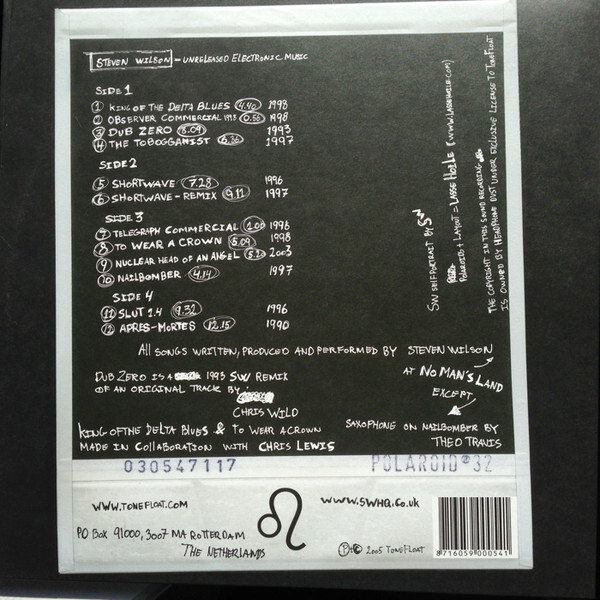 STEVEN WILSON - UNRELEASED ELECTRONIC MUSIC
SIDE 1
1 KING OF THE DELTA BLUES 4.40 1998
2 OBSERVER COMMERCIAL 1998 0.56 1998
3 DUB ZERO 8.09 1993
4 THE TOBOGGANIST 6.36 1997
SIDE 2
5 SHORTWAVE 7.28 1996
6 SHORTWAVE - REMIX 9.11 1997
SIDE 3
7 TELEGRAPH COMMERCIAL 1.00 1996
8 TO WEAR A CROWN 5.09 1998
9 NUCLEAR HEAD OF AN ANGEL 5.20 2003
10 NAILBOMBER 4.14 1997
SIDE 4
11 SLUT 1.4 9.32 1996
12 APRES-MORTES 12.15 1990
All SONGS WRITTEN, PRODUCED AND PERFORMED BY STEVEN WILSON
AT NO MAN'S LAND
EXCEPT
DUB ZERO IS A 1993 SW REMIX
OF AN ORIGINAL TRACK BY
CHRIS WILD
KING OF THE DELTA BLUES & TO WEAR A CROWN
MADE IN COLLABORATION WITH CHRIS LEWIS
SAXOPHONE ON NAILBOMBER BY
THEO TRAVIS
SW SELFPORTRAIT BY SW
POLAROIDS + LAYOUT = LASSE HOILE (WWW.LASSEHOILE.COM)
THE COPYRIGHT IN THIS SOUND RECORDING
IS OWNED BY HEADPHONE DUST UNDER EXCLUSIVE LICENSE TO TONEFLOAT
030547117 POLAROID® 32
WWW.TONEFLOAT.COM
PO BOX 91000, 3007 MA ROTTERDAM
THE NETHERLANDS
♌
WWW.SWHQ.CO.UK
℗+© 2005 TONEFLOAT
8 716059 000541